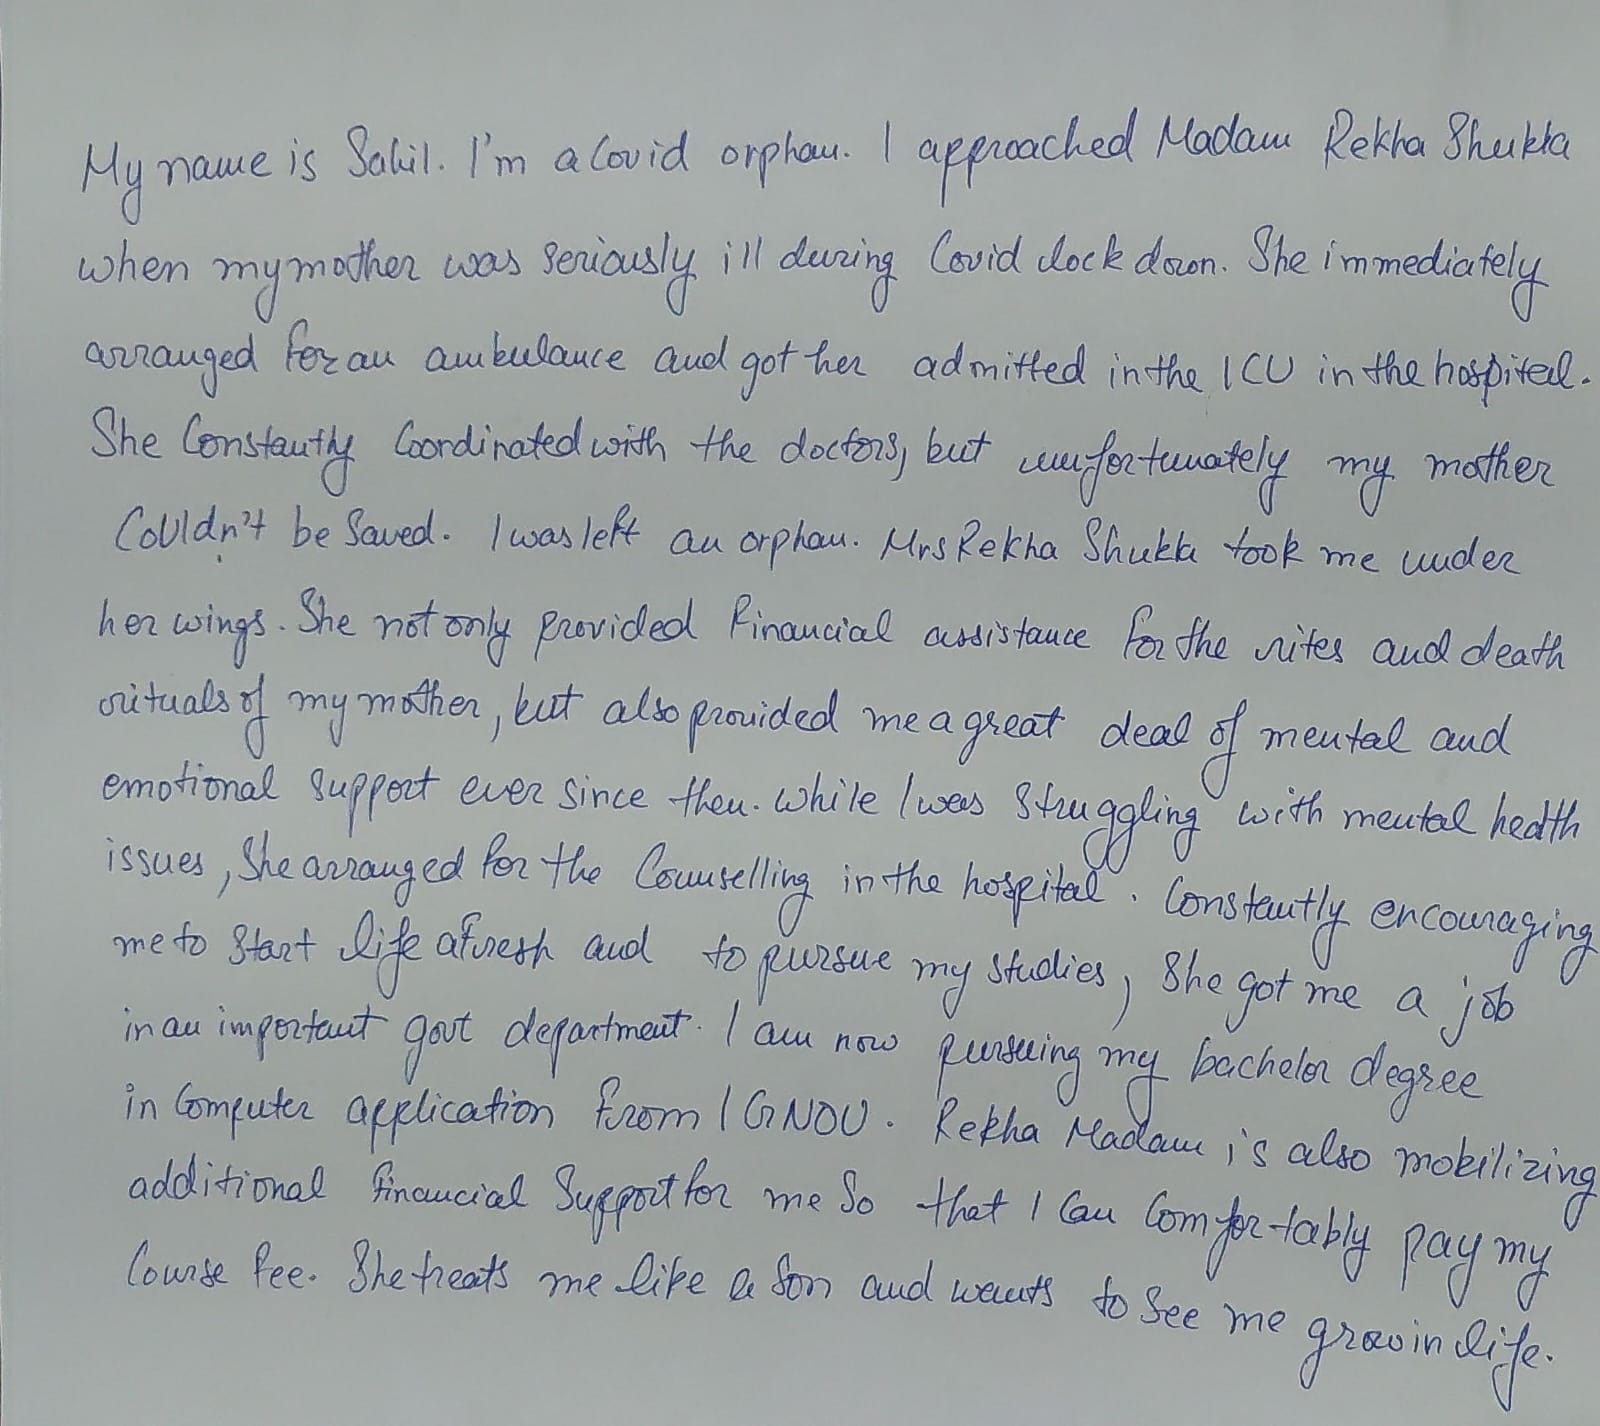 My name is Sahil. I'm a Covid orphan. I approached Madam Rekha Shukla
when my mother was seriously ill during Covid lock down. She immediately
arranged for an ambulance and got her admitted in the ICU in the hospital.
She Constantly Coordinated with the doctors, but unfortunately my mother
Couldn't be Saved. I was left an orphan. Mrs Rekha Shukla took me under
her wings. She not only provided financial assistance for the rites and death
rituals of my mother, but also provided me a great deal of mental and
emotional support ever since then. while I was Struggling with mental health
issues, She arranged for the Counselling in the hospital. Constantly encouraging
me to Start life afresh and to pursue my studies, She got me a job
in an important govt department. I am now pursuing my bachelor degree
in Computer application from IGNOU. Rekha Madam is also mobilizing
additional financial Support for me So that I Can Comfortably pay my
Course fee. She treats me like a Son and wants to See me grow in life.